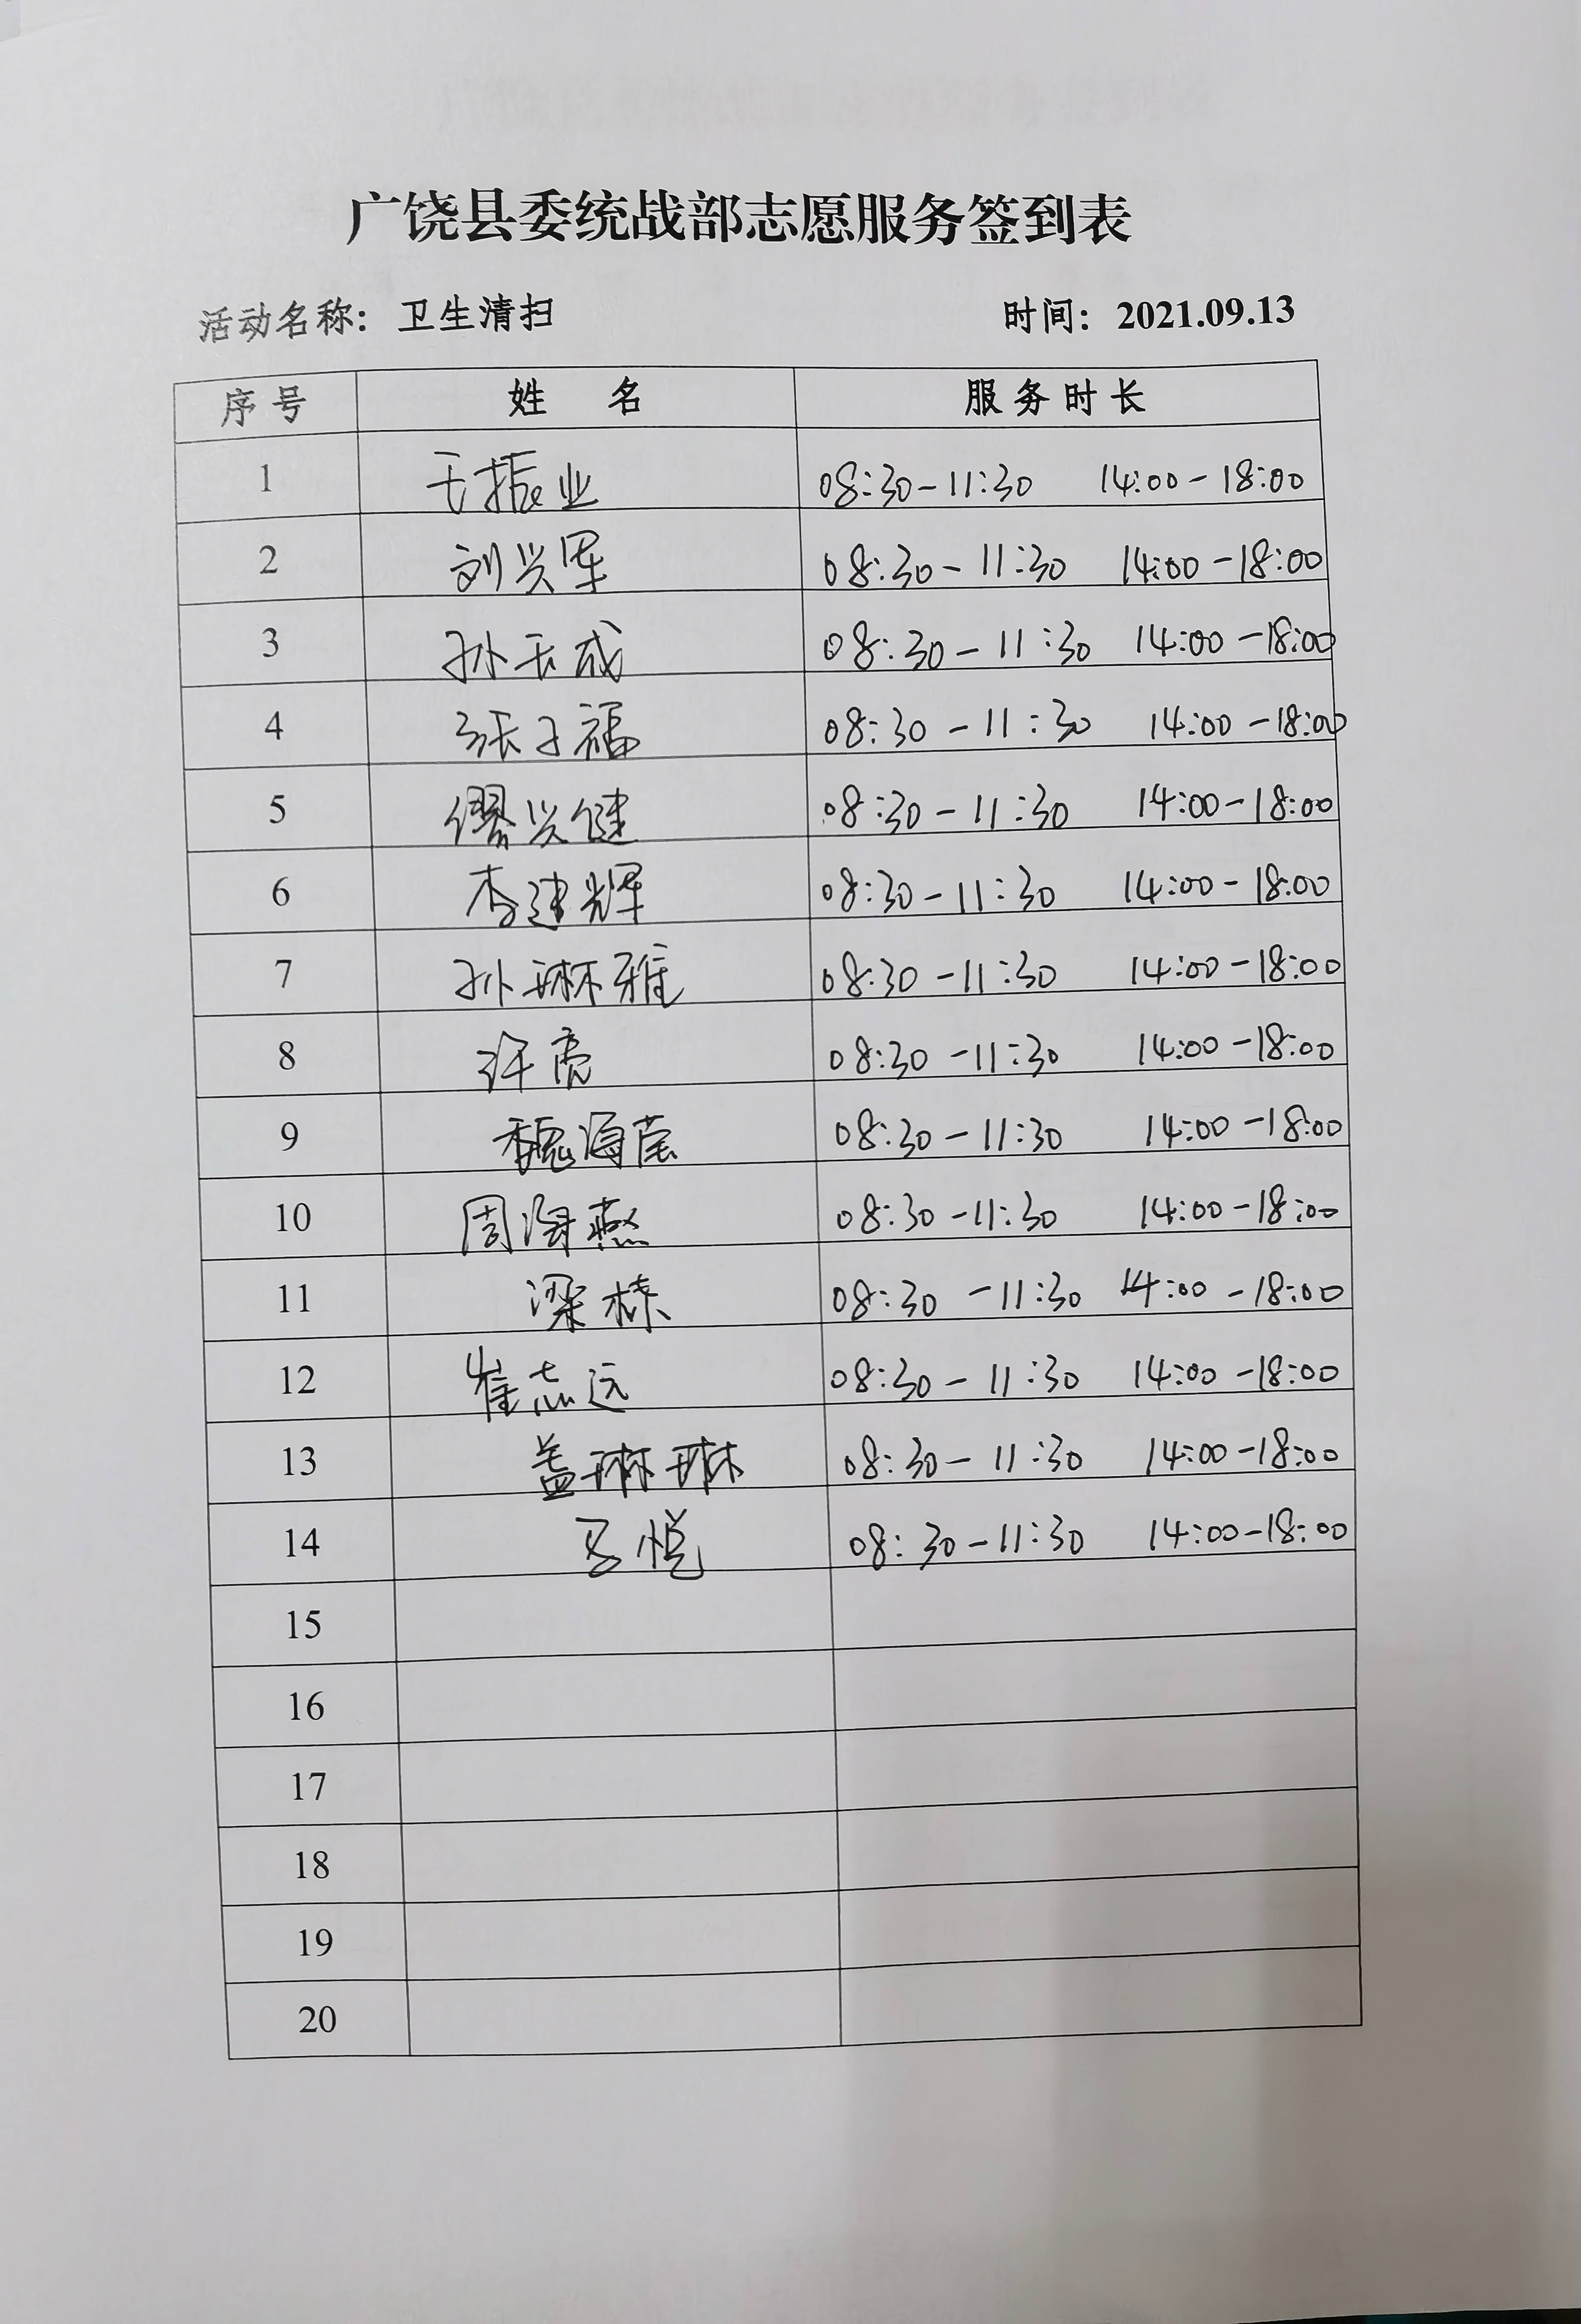 广饶县委统战部志愿服务签到表
活动名称：卫生清扫 时间：2021.09.13
序号 姓 名 服务时长
1 王振业 08:30-11:30 14:00-18:00
2 刘兴军 08:30-11:30 14:00-18:00
3 孙玉成 08:30-11:30 14:00-18:00
4 张子福 08:30-11:30 14:00-18:00
5 缪兴健 08:30-11:30 14:00-18:00
6 李建辉 08:30-11:30 14:00-18:00
7 孙琳雅 08:30-11:30 14:00-18:00
8 许亮 08:30-11:30 14:00-18:00
9 魏海莹 08:30-11:30 14:00-18:00
10 周海燕 08:30-11:30 14:00-18:00
11 08:30-11:30 14:00-18:00
12 崔志远 08:30-11:30 14:00-18:00
13 盖琳琳 08:30-11:30 14:00-18:00
14 马悦 08:30-11:30 14:00-18:00
15
16
17
18
19
20